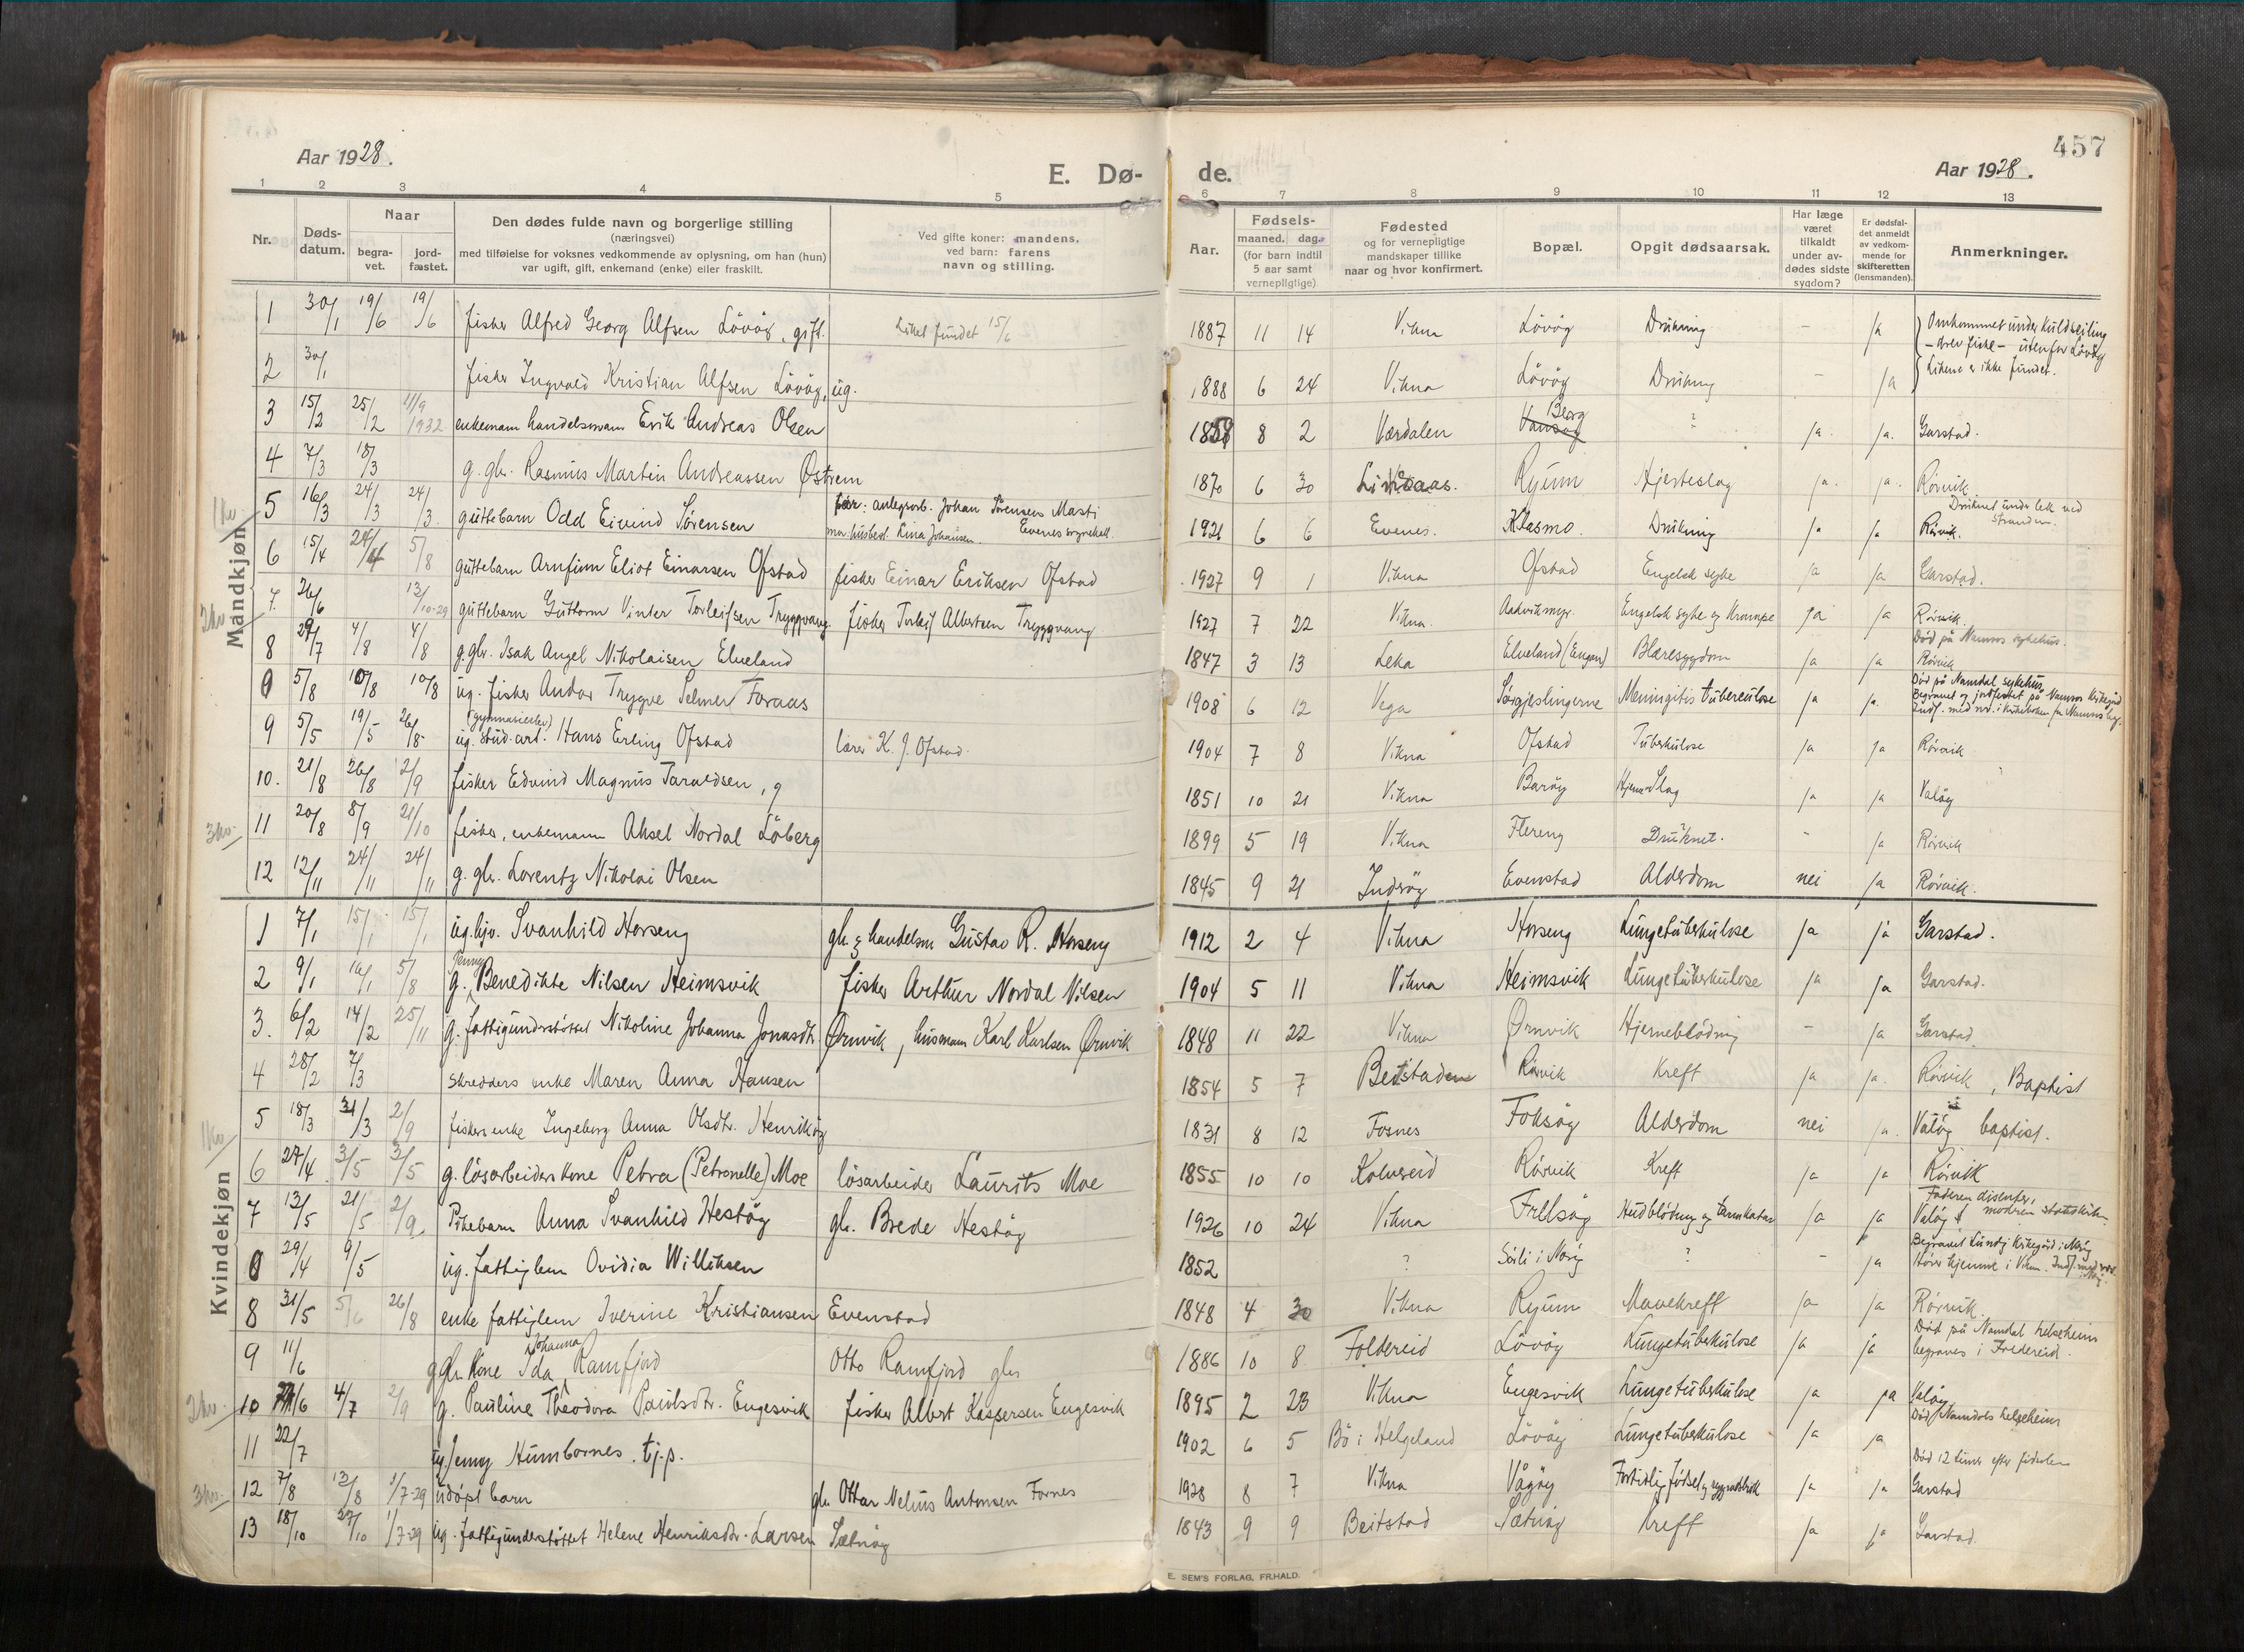 457
Aar 1928.
E. Dø-
de.
Aar 1928.
1 2 3 4 5 6 7 8 9 10 11 12 13
Nr.
Døds-
datum.
Naar
begra-
vet.
jord-
fæstet.
Den dødes fulde navn og borgerlige stilling
(næringsvei)
med tilføielse for voksnes vedkommende av oplysning, om han (hun)
var ugift, gift, enkemand (enke) eller fraskilt.
Ved gifte koner: mandens.
ved barn: farens
navn og stilling.
Aar.
Fødsels-
maaned. dag.
(for barn indtil
5 aar samt
vernepligtige)
Fødested
og for vernepligtige
mandskaper tillike
naar og hvor konfirmert.
Bopæl.
Opgit dødsaarsak.
Har læge
været
tilkaldt
under av-
dødes sidste
sygdom?
Er dødsfal-
det anmeldt
av vedkom-
mende for
skifteretten
(lensmanden).
Anmerkninger.
Mandkjøn
1 30/1 19/6 19/6 fisker Alfred Georg Alfsen Lövöy, gift. Liket fundet 15/6 1887 11 14 Vikna Lövöy Drukning - ja Omkommet under kuldseiling
- drev fiske - utenfor Lövöy
2 30/1 fisker Ingvald Kristian Alfsen Lövöy, ug. 1888 6 24 Vikna Lövöy Drukning - ja Likene er ikke fundet.
3 15/2 25/2 11/9 1932 enkemann handelsmann Erik Andreas Olsen 1858 8 2 Værdalen Berg ? ja. ja. Garstad.
4 7/3 18/3 g. gbr. Rasmus Martin Andreassen Østrem 1870 6 30 Lindaas. Ryum Hjerteslag ja. ja. Rörvik
5 16/3 24/3 24/3 guttebarn Odd Eivind Sörensen far: anlegsarb. Johan Sörensen Masti
mor. husbest. Lina Johansen. Evenes sognekall. 1921 6 6 Evenes. Klasmo. Drukning ja ja Druknet under lek ved
stranden.
Rörvik.
6 15/4 24/4 5/8 guttebarn Arnfinn Eliot Einarsen Ofstad fisker Einar Eriksen Ofstad 1927 9 1 Vikna Ofstad Engelsk syke ja ja Garstad.
7. 26/6 13/10-29 guttebarn Guttorm Vinter Torleifsen Tryggvang. fisker Torleif Albertsen Tryggvang 1927 7 22 Vikna. Aadvikmyr. Engelsk syke og krampe ja ja Rörvik.
Död på Namsos sykehus.
8 29/7 4/8 4/8 g. gbr. Isak Angel Nikolaisen Elveland 1847 3 13 Leka Elveland (Engan) Blæresygdom ja ja Rörvik
0 5/8 10/8 10/8 ug. fisker Andor Trygve Selmer Foraas 1908 6 12 Vega Sörgjeslingerne Meningitis tuberculose ja ja. Död på Namdal sykehus,
Begravet og jordfestet på Namsos kirkegård
Indf. med nr. i kirkeboken for Namsos
9 5/5 19/5 26/8 (gymnasielev)
ug. stud. art. Hans Erling Ofstad lærer K. J. Ofstad. 1904 7 8 Vikna Ofstad Tuberkulose ja ja Rörvik
10. 21/8 26/8 2/9 fisker Edvind Magnus Taraldsen, g 1851 10 21 Vikna Baröy Hjerne-Slag ja ja Valöy
11 20/8 8/9 21/10 fisker, enkemann Aksel Nordal Löberg 1899 5 19 Vikna Flereng Druknet. - ja Rörvik
12 12/11 24/11 24/11 g. gbr. Lorentz Nikolai Olsen 1845 9 21 Inderöy Evenstad Alderdom nei ja Rörvik.
1kv
2kv
3kv.
Kvindekjøn
1 7/1 15/1 15/1 ug. hjv. Svanhild Horseng gbr. & handelsm Gustav R. Horseng 1912 2 4 Vikna Horseng Lungetuberkulose ja ja Garstad.
2 9/1 16/1 5/8 g. Jenny Benedikte Nilsen Heimsvik fisker Arthur Nordal Nilsen 1904 5 11 Vikna Heimsvik Lungetuberkulose ja ja Garstad.
3. 6/2 14/2 25/11 g. fattigunderstöttet Nikoline Johanna Jonasdtr Ørnvik, husmann Karl Karlsen Ørnvik 1848 11 22 Vikna Ørnvik Hjerneblödning - ja Garstad.
4 28/2 7/3 skredders enke Maren Anna Hansen 1854 5 7 Beitstaden Rörvik Kreft ja ja. Rörvik, Baptist
5 18/3 31/3 2/9 fiskers enke Ingeborg Anna Olsdtr. Henriköy 1831 8 12 Fosnes Foksöy Alderdom nei ja. Valöy baptist.
6 27/4 3/5 3/5 g. lösarbeiders kone Petra (Petronelle) Moe lösarbeider Laurits Moe 1855 10 10 Kolvereid Rörvik Kreft ja ja Rörvik
7 13/5 21/5 2/9 Pikebarn Anna Svanhild Hestöy gbr. Brede Hestöy 1926 10 24 Vikna Frelsöy Hudblödning og tarmkatar ja ja Faderen disenter,
Valöy moderen statskirk.
0 29/4 9/5 ug. fattiglem Ovidia Williksen 1852 ? Seili i Næröy ? - ja Begravet Lundöy kirkegård i Næröy
Hörer hjemme i Vikna.
8 31/5 5/6 26/8 enke fattiglem Iverine Kristiansen Evenstad 1848 4 30 Vikna Ryum Mavekreft ja ja Rörvik.
9 11/6 g gbr. kone Ida Johanna Ramfjord Otto Ramfjord gbr 1886 10 8 Foldereid Lövöy Lungetuberkulose ja ja Död på Namdal helseheim
begraves i Foldereid.
10 24/6 4/7 2/9 g. Pauline Theodora Paulsdtr. Engesvik fisker Albert Kaspersen Engesvik 1895 2 23 Vikna Engesvik Lungetuberkulose ja ja Valöy
11 22/7 ug. Jenny Humbornes. tj.p. 1902 6 5 Bö i Helgeland Lövöy Lungetuberkulose ja ja Död Namdals helseheim
12 7/8 13/8 1/7-29 udöpt barn gbr Ottar Nelius Antonsen Fornes 1928 8 7 Vikna Vågöy Fortidlig födsel og ryggmarksbrok ja ja Död 12 timer efter födselen
Garstad
13 18/10 27/10 1/7-29 ug. fattigunderstöttet Helene Henriksdtr. Larsen Sætnöy 1843 9 9 Beitstad Sætnöy Kreft ja ja Garstad.
1kv
2kv.
3kv.
E. SEM'S FORLAG, FR.HALD.